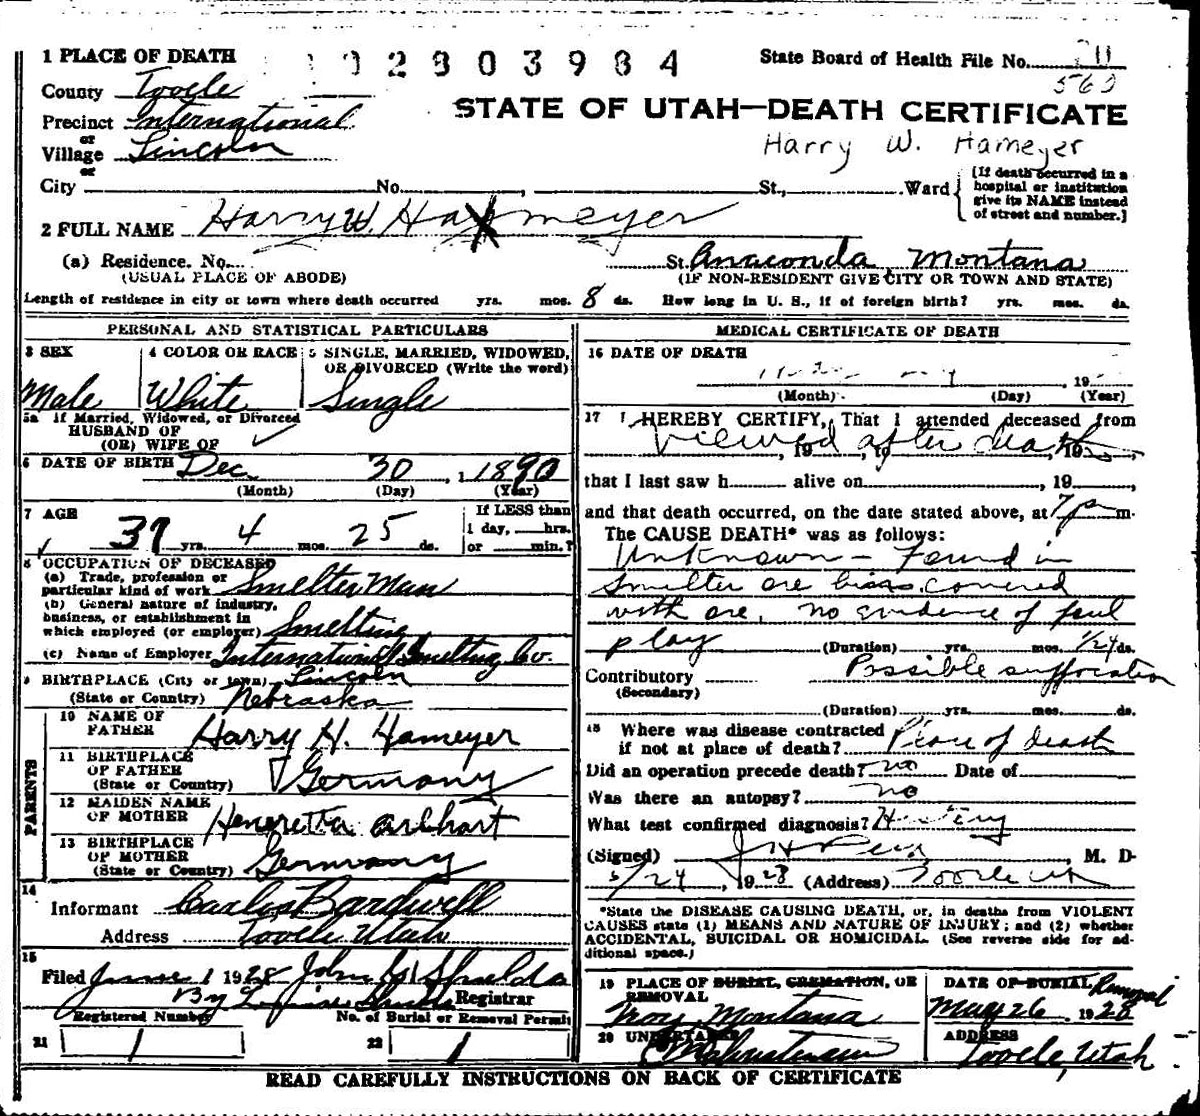 1 PLACE OF DEATH 2803984 State Board of Health File No.
County Tooele 560
STATE OF UTAH—DEATH CERTIFICATE
Precinct International
or
Village Lincoln Harry W. Hameyer
or
City No. , St., Ward
[If death occurred in a hospital or institution give its NAME instead of street and number.]
2 FULL NAME Harry W. Hameyer
(a) Residence. No. St. Anaconda, Montana
(USUAL PLACE OF ABODE) (IF NON-RESIDENT GIVE CITY OR TOWN AND STATE)
Length of residence in city or town where death occurred yrs. mos. 8 ds. How long in U. S., if of foreign birth? yrs. mos. ds.
PERSONAL AND STATISTICAL PARTICULARS
3 SEX 4 COLOR OR RACE 5 SINGLE, MARRIED, WIDOWED,
OR DIVORCED (Write the word)
Male White Single
5a If Married, Widowed, or Divorced
HUSBAND OF
(OR) WIFE OF
6 DATE OF BIRTH Dec 30, 1890
(Month) (Day) (Year)
7 AGE If LESS than
37 yrs. 4 mos. 25 ds. 1 day, hrs.
or min.?
8 OCCUPATION OF DECEASED
(a) Trade, profession or
particular kind of work Smelter Man
(b) General nature of industry,
business, or establishment in
which employed (or employer) Smelting
(c) Name of Employer International Smelting Co.
9 BIRTHPLACE (City or town) Lincoln
(State or Country) Nebraska
PARENTS
10 NAME OF
FATHER Harry H. Hameyer
11 BIRTHPLACE
OF FATHER
(State or Country) Germany
12 MAIDEN NAME
OF MOTHER Heneretta
13 BIRTHPLACE
OF MOTHER
(State or Country) Germany
14
Informant Carlos Bardwell
Address Tooele Utah
15
Filed June 1 1928 John
By Registrar
Registered Number No. of Burial or Removal Permit
21 1 22 1
MEDICAL CERTIFICATE OF DEATH
16 DATE OF DEATH
, 19
(Month) (Day) (Year)
17 I HEREBY CERTIFY, That I attended deceased from
Viewed after death
, 19 , to , 19
that I last saw h alive on , 19 ,
and that death occurred, on the date stated above, at 7 p m.
The CAUSE DEATH* was as follows:
Unknown – Found in
Smelter ore bins, covered
with ore. no evidence of foul
play (Duration) yrs. mos. 1/24 ds.
Contributory Possible suffocation
(Secondary)
(Duration) yrs. mos. ds.
18 Where was disease contracted
if not at place of death? Place of death
Did an operation precede death? no Date of
Was there an autopsy? no
What test confirmed diagnosis? History
(Signed) J H , M. D.
5/24, 1928 (Address) Tooele Ut
*State the DISEASE CAUSING DEATH, or, in deaths from VIOLENT
CAUSES state (1) MEANS AND NATURE OF INJURY; and (2) whether
ACCIDENTAL, SUICIDAL OR HOMICIDAL. (See reverse side for ad-
ditional space.)
19 PLACE OF BURIAL, CREMATION, OR REMOVAL DATE OF BURIAL Removal
Troy, Montana May 26, 1928
20 UNDERTAKER ADDRESS
Tooele, Utah
READ CAREFULLY INSTRUCTIONS ON BACK OF CERTIFICATE